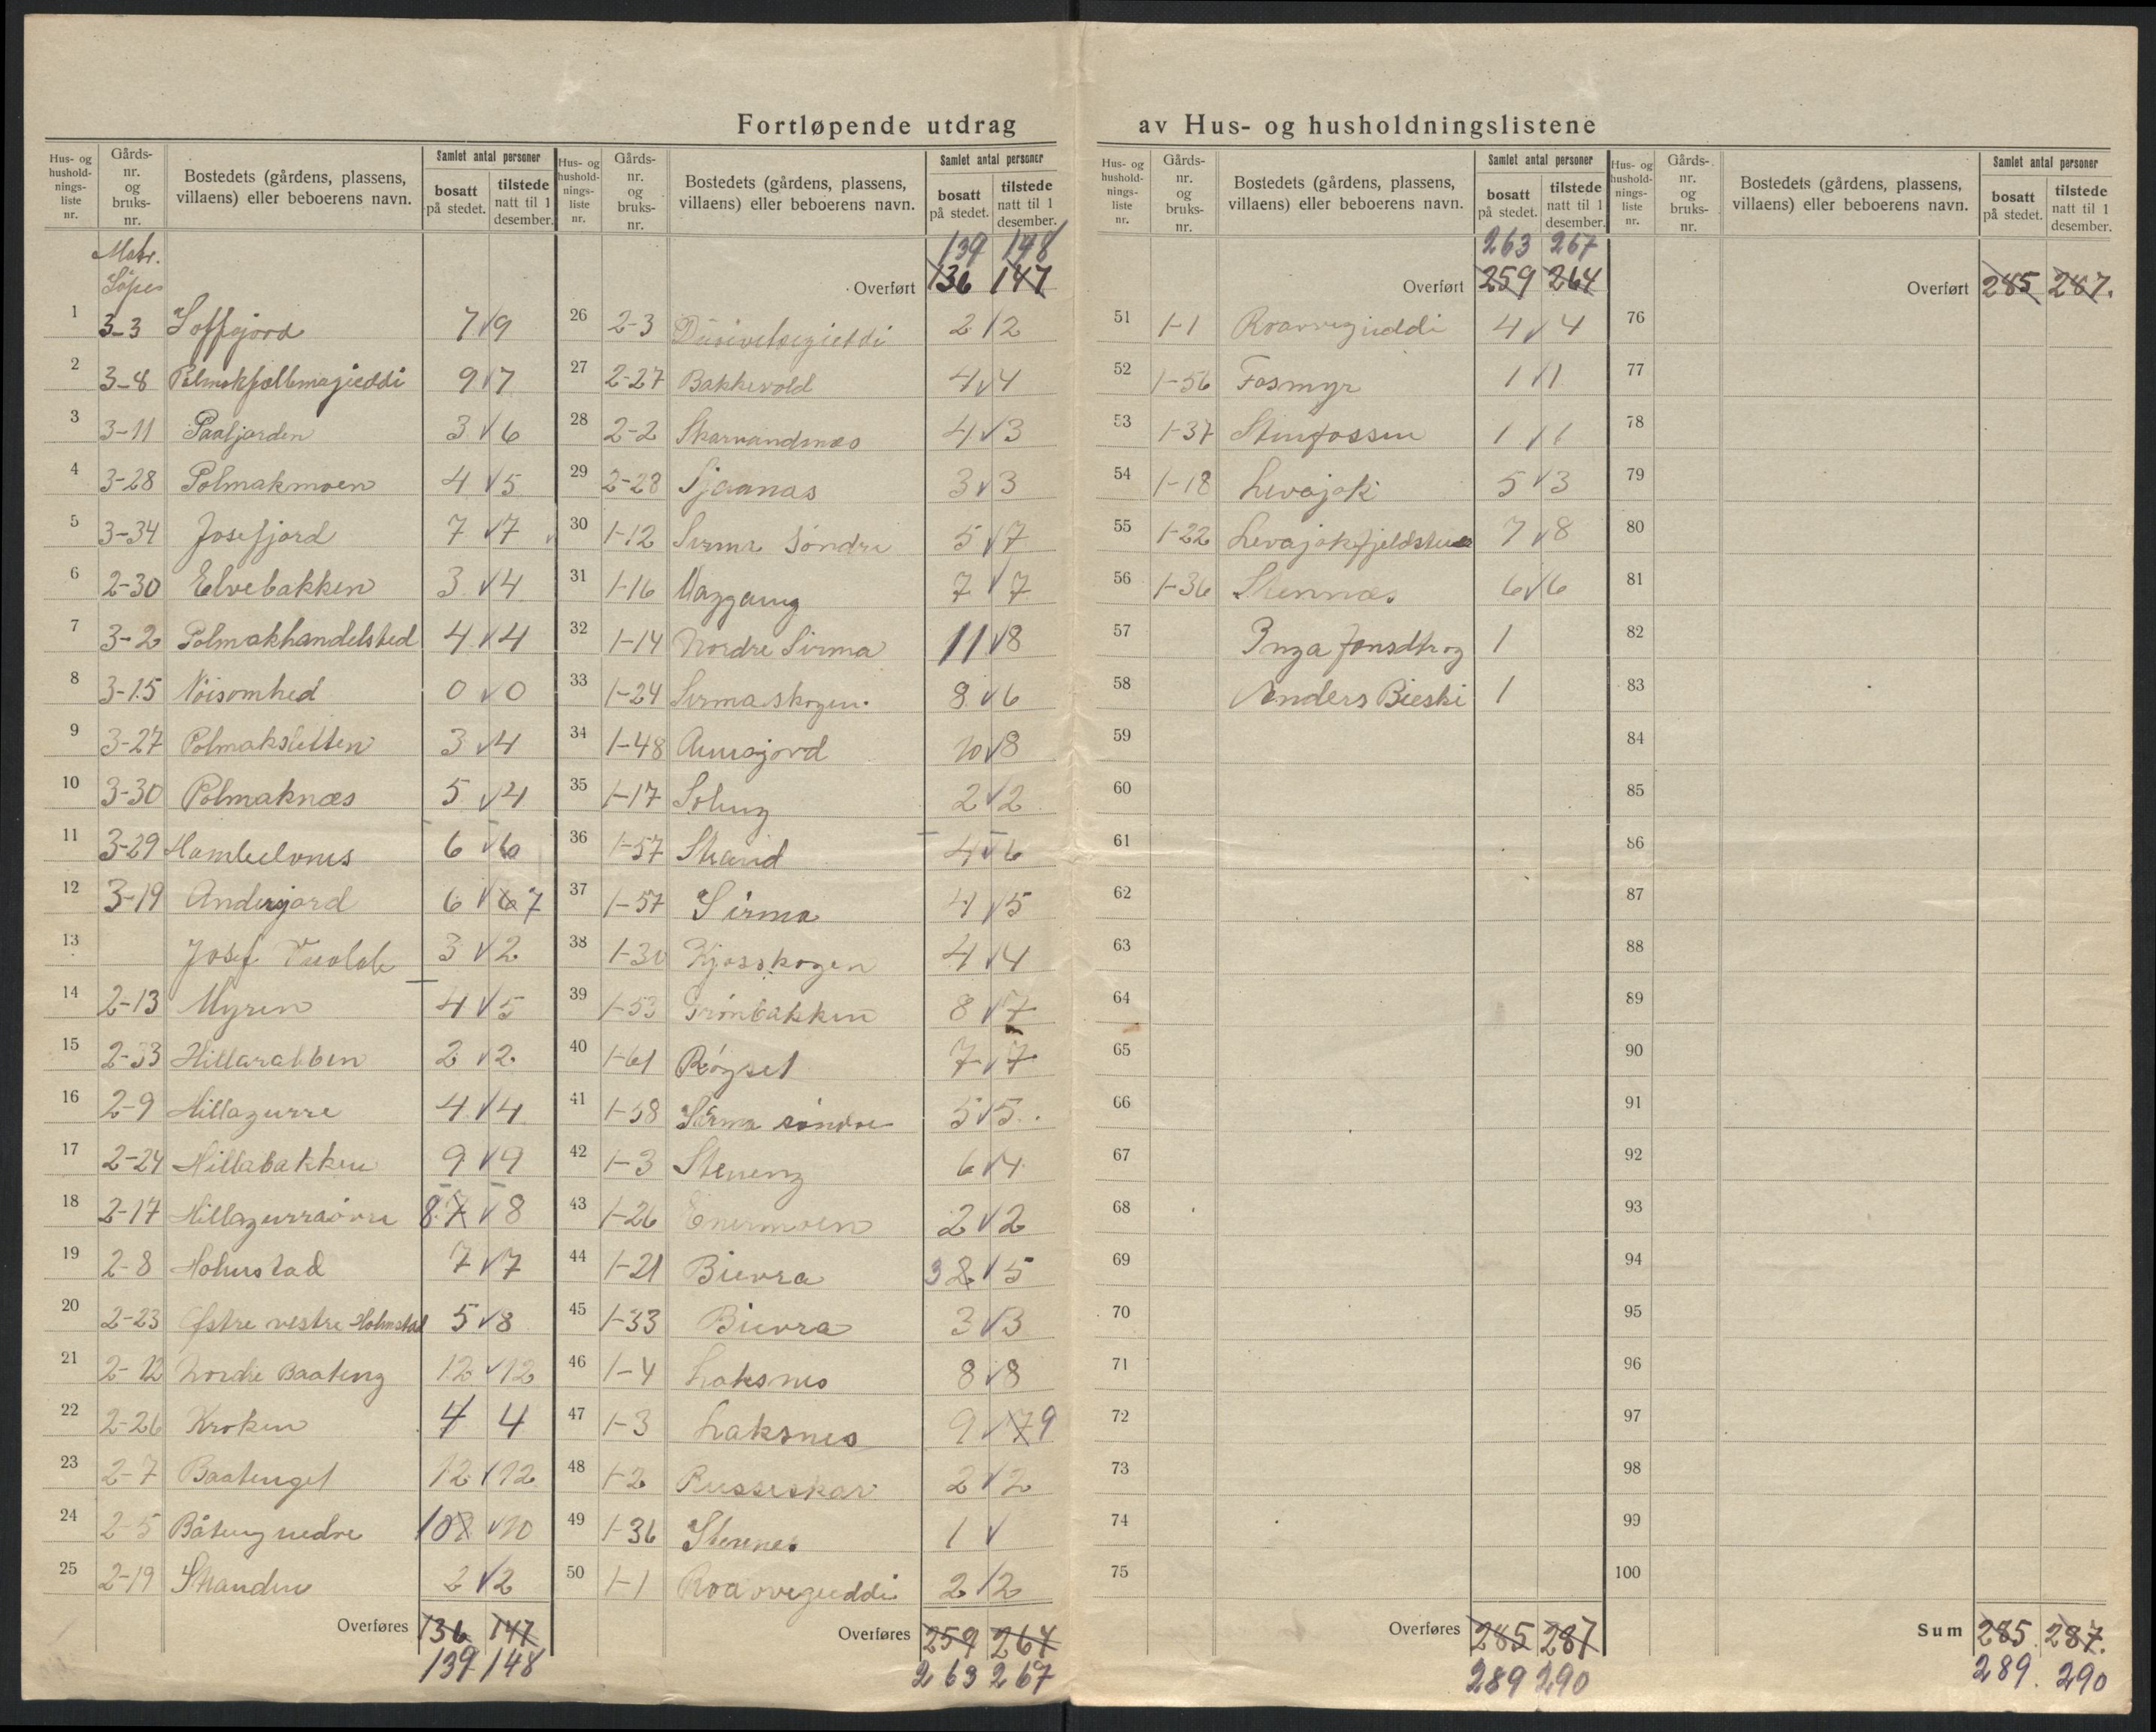 Fortløpende utdrag av Hus- og husholdningslistene
Hus- og husholdningsliste nr. Gårdsnr. og bruksnr. Bostedets (gårdens, plassens, villaens) eller beboerens navn. Samlet antal personer bosatt på stedet. tilstede natt til 1 desember.
Matr.
Løpe
1 3-3 Soffgjord 7 √ 9
2 3-8 Polmakfjellmagieddi 9 √ 7
3 3-11 Paafjorden 3 √ 6
4 3-28 Polmakmoen 4 √ 5
5 3-34 Josefjord 7 √ 7
6 2-30 Elvebakken 3 √ 4
7 3-2 Polmakhandelsted 4 √ 4
8 3-15 Nöisomhed 0 √ 0
9 3-27 Polmakslètten 3 √ 4
10 3-30 Polmaknæs 5 √ 4
11 3-29 6 √ 6
12 3-19 Andersjord 6 √ 6 7
13 Josef 3 √ 2
14 2-13 Myren 4 √ 5
15 2-33 Hillarabben 2 √ 2
16 2-9 Hillagurra 4 √ 4
17 2-24 Hillabakken 9 √ 9
18 2-17 Hillagurraövre 8 7 √ 8
19 2-8 Holmstad 7 √ 7
20 2-23 Østre vestre Holmstad 5 √ 8
21 2-12 Nordre Baateng 12 √ 12
22 2-26 Kroken 4 4
23 2-7 Baatenget 12 √ 12
24 2-5 Båteng nedre 10 8 √ 10
25 2-19 Standen 2 √ 2
Overføres 136 147
139 148
Hus- og husholdningsliste nr. Gårdsnr. og bruksnr. Bostedets (gårdens, plassens, villaens) eller beboerens navn. Samlet antal personer bosatt på stedet. tilstede natt til 1 desember.
139 148
Overført 136 147
26 2-3 2 √ 2
27 2-27 Bakkevold 4 √ 4
28 2-2 Skarvandnæs 4 √ 3
29 2-28 Sjaanas 3 √ 3
30 1-12 Sirma Söndre 5 √ 7
31 1-16 7 √ 7
32 1-14 Nordre Sirma 11 √ 8
33 1-24 Sirmaskogen. 8 √ 6
34 1-48 10 √ 8
35 1-17 Soleng 2 √ 2
36 1-57 Strand 4 √ 6
37 1-57 Sirma 4 √ 5
38 1-30 Kjosskogen 4 √ 4
39 1-53 Grönbakken 8 √ 7
40 1-61 Røyset 7 √ 7
41 1-58 Sirma söndre 5 √ 5
42 1-3 Steneng 6 √ 4
43 1-26 Enermoen 2 √ 2
44 1-21 Bievra 3 2 √ 5
45 1-33 Bievra 3 √ 3
46 1-4 Laksnes 8 √ 8
47 1-3 Laksnes 9 √ 7 9
48 1-2 Russeskar 2 √ 2
49 1-36 Stennes 1 √
50 1-1 Roavvegieddi 2 √ 2
Overføres 259 264
263 267
Hus- og husholdningsliste nr. Gårdsnr. og bruksnr. Bostedets (gårdens, plassens, villaens) eller beboerens navn. Samlet antal personer bosatt på stedet. tilstede natt til 1 desember.
263 267
Overført 259 264
51 1-1 Roavvegieddi 4 √ 4
52 1-56 Fosmyr 1 √ 1
53 1-37 Stenfossen 1 √ 1
54 1-18 Levajok 5 √ 3
55 1-22 Levajokfjeldstue 7 √ 8
56 1-36 Stennæs 6 √ 6
57 Inga Jonsdtr og 1
58 Anders Bieski 1
59
60
61
62
63
64
65
66
67
68
69
70
71
72
73
74
75
Overføres 285 287
289 290
Hus- og husholdningsliste nr. Gårdsnr. og bruksnr. Bostedets (gårdens, plassens, villaens) eller beboerens navn. Samlet antal personer bosatt på stedet. tilstede natt til 1 desember.
Overført 285 287.
76
77
78
79
80
81
82
83
84
85
86
87
88
89
90
91
92
93
94
95
96
97
98
99
100
Sum 285. 287.
289. 290